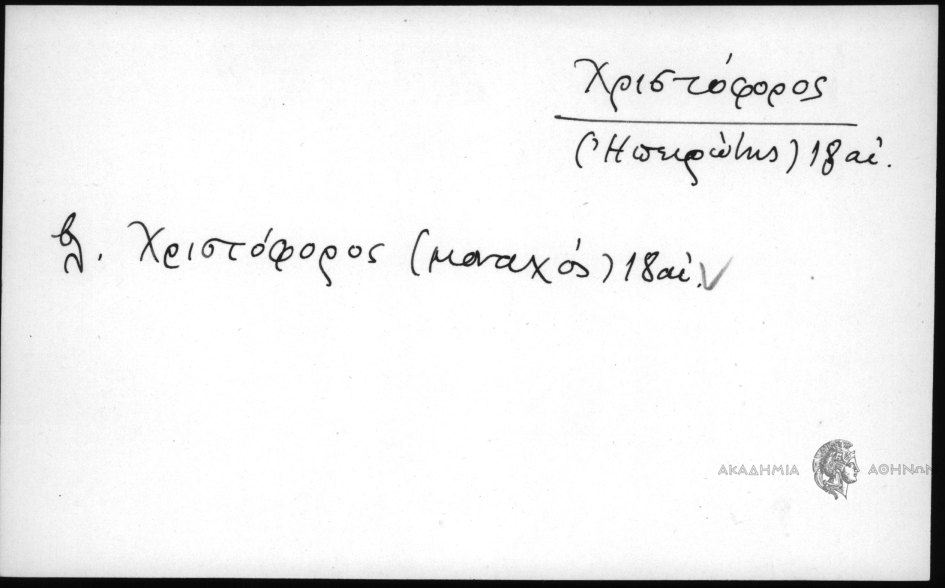 Χριστόφορος
(Ἠπειρώτης) 18 αἰ.
βλ. Χριστόφορος (μοναχός) 18 αἰ.
ΑΚΑΔΗΜΙΑ ΑΘΗΝΩΝ